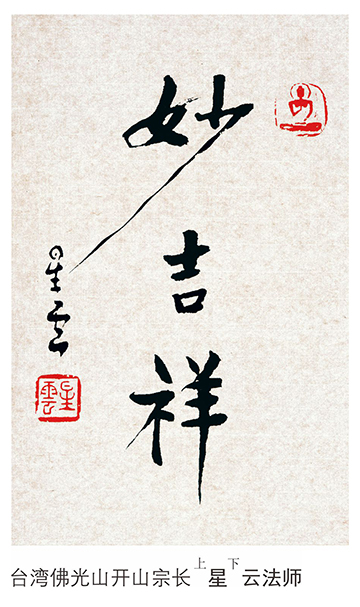 妙吉祥
星云
星雲
台湾佛光山开山宗长上星下云法师